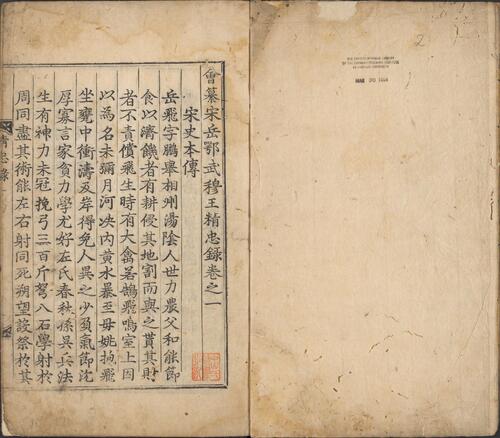 2
MAR 20 1964
會纂宋岳鄂武穆王精忠錄卷之一
宋史本傳
岳飛字鵬舉相州湯陰人世力農父和能節
食以濟饑者有耕侵其地割而與之貰其財
者不責償飛生時有大禽若鵠飛鳴室上因
以為名未彌月河決内黃水暴至母姚抱飛
坐甕中衝濤及岸得免人異之少負氣節沈
厚寡言家貧力學尤好左氏春秋孫吳兵法
生有神力未冠挽弓三百斤弩八石學射於
周同盡其術能左右射同死朔望設祭於其
精忠錄